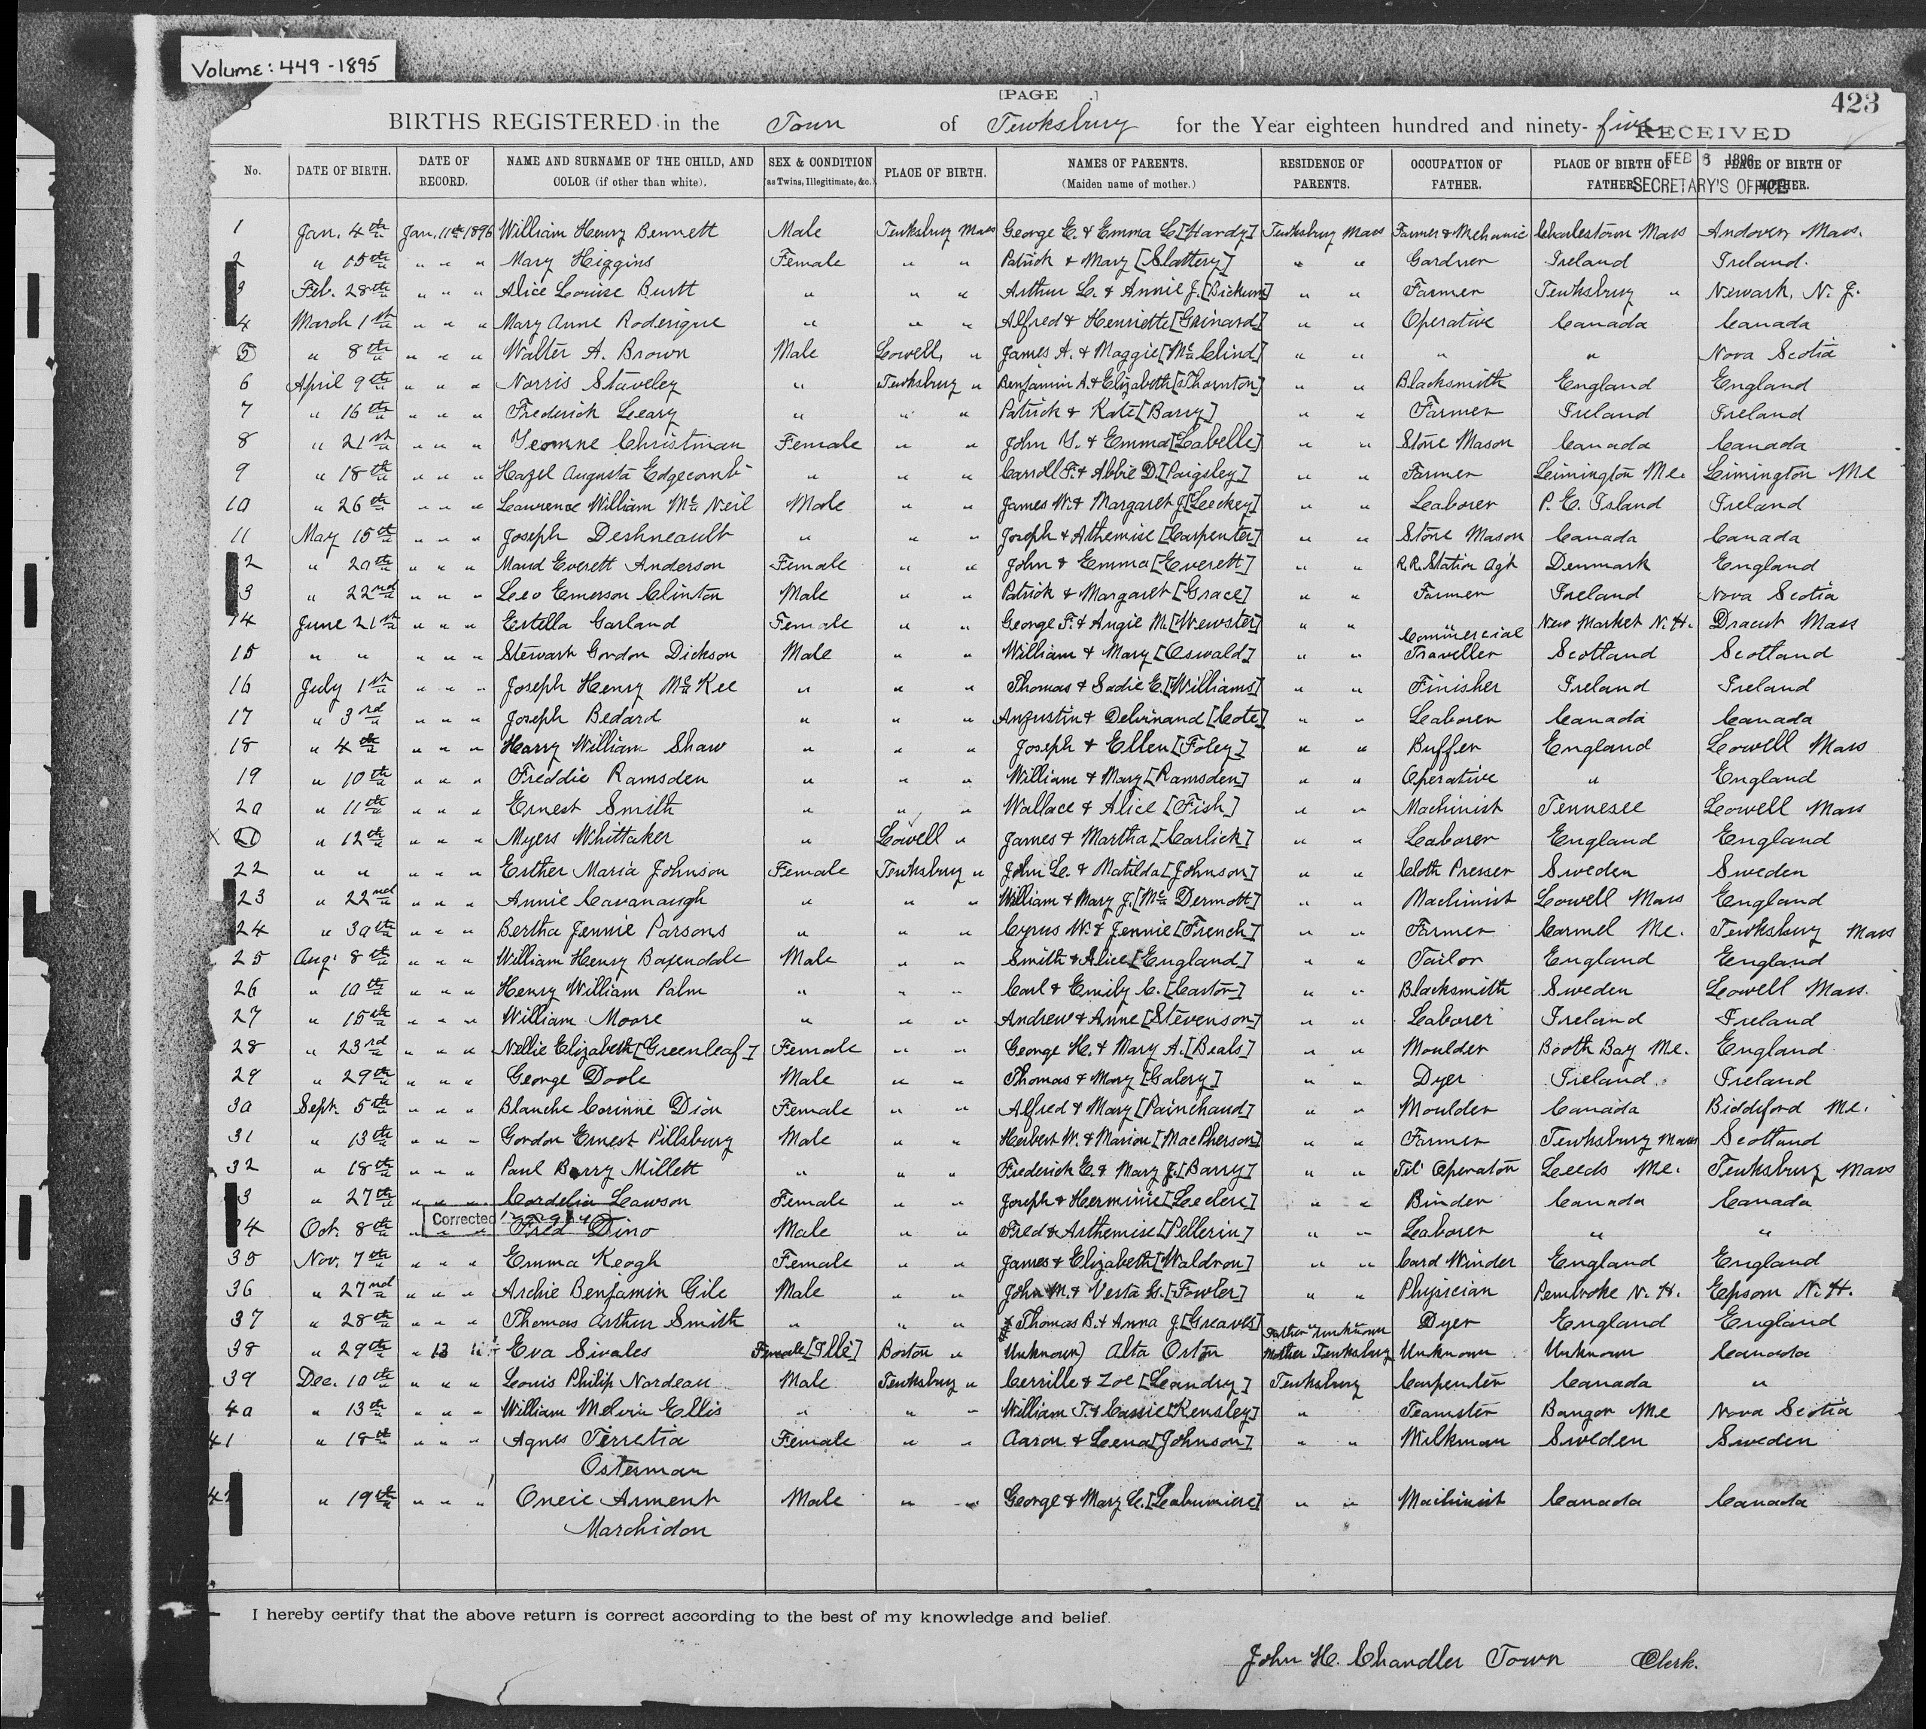 Volume: 449-1895
[PAGE ]
423
BIRTHS REGISTERED in the Town of Tewksbury for the Year eighteen hundred and ninety-five
RECEIVED
FEB 6 1896
SECRETARY'S OFFICE
No. DATE OF BIRTH. DATE OF RECORD. NAME AND SURNAME OF THE CHILD, AND COLOR (if other than white). SEX & CONDITION (as Twins, Illegitimate, &c.) PLACE OF BIRTH. NAMES OF PARENTS. (Maiden name of mother.) RESIDENCE OF PARENTS. OCCUPATION OF FATHER. PLACE OF BIRTH OF FATHER. PLACE OF BIRTH OF MOTHER.
1 Jan. 4th Jan. 11th 1896 William Henry Bennett Male Tewksbury Mass George E. & Emma L. [Hardy] Tewksbury Mass Farmer & Mechanic Charlestown Mass Andover Mass.
2 " 15th " " " Mary Higgins Female " " Patrick & Mary [Slattery] " " Gardner Ireland Ireland.
3 Feb. 28th " " " Alice Louise Burtt " " " Arthur L. & Annie J. [Bickum] " " Farmer Tewksbury " Newark, N. J.
4 March 1st " " " Mary Anne Roderigue " " " Alfred & Henriette [Grinard] " " Operative Canada Canada
5 " 8th " " " Walter A. Brown Male Lowell, " James A. & Maggie [McClind] " " " " Nova Scotia
6 April 9th " " " Norris Staveley " Tewksbury " Benjamin A. & Elizabeth [Thornton] " " Blacksmith England England
7 " 16th " " " Frederick Leary " " " Patrick & Kate [Barry] " " Farmer Ireland Ireland
8 " 21st " " " Yeomne Christman Female " " John Y. & Emma [Labelle] " " Stone Mason Canada Canada
9 " 18th " " " Hazel Augusta Edgecomb " " " Carroll F. & Abbie D. [Paigsley] " " Farmer Limington Me. Limington Me
10 " 26th " " " Lawrence William McNeil Male " " James W. & Margaret J. [Leckey] " " Laborer P. E. Island Ireland
11 May 15th " " " Joseph Deshneault " " " Joseph & Athemise [Carpenter] " " Stone Mason Canada Canada
12 " 20th " " " Maud Everett Anderson Female " " John & Emma [Everett] " " R.R. Station Agt Denmark England
13 " 22nd " " " Leo Emerson Clinton Male " " Patrick & Margaret [Grace] " " Farmer Ireland Nova Scotia
14 June 21st " " " Estella Garland Female " " George F. & Angie M. [Wewster] " " " New Market N. H. Dracut Mass
15 " " " " " Stewart Gordon Dickson Male " " William & Mary [Oswald] " " Commercial Traveller Scotland Scotland
16 July 1st " " " Joseph Henry McKee " " " Thomas & Sadie E. [Williams] " " Finisher Ireland Ireland
17 " 3rd " " " Joseph Bedard " " " Angustin & Delvinand [Cote] " " Laborer Canada Canada
18 " 4th " " " Harry William Shaw " " " Joseph & Ellen [Foley] " " Buffer England Lowell Mass
19 " 10th " " " Freddie Ramsden " " " William & Mary [Ramsden] " " Operative " England
20 " 11th " " " Ernest Smith " " " Wallace & Alice [Fish] " " Machinist Tennesee Lowell Mass
X 21 " 12th " " " Myers Whittaker " Lowell " James & Martha [Carlick] " " Laborer England England
22 " " " " " Esther Maria Johnson Female Tewksbury " John L. & Matilda [Johnson] " " Cloth Presser Sweden Sweden
23 " 22nd " " " Annie Cavanaugh " " " William & Mary J. [McDermott] " " Machinist Lowell Mass England
24 " 30th " " " Bertha Jennie Parsons " " " Cyrus W. & Jennie [French] " " Farmer Carmel Me. Tewksbury Mass
25 Aug. 8th " " " William Henry Baxendale Male " " Smith & Alice [England] " " Tailor England England
26 " 10th " " " Henry William Palm " " " Carl & Emily C. [Caston] " " Blacksmith Sweden Lowell Mass.
27 " 15th " " " William Moore " " " Andrew & Anne [Stevenson] " " Laborer Ireland Ireland
28 " 23rd " " " Nellie Elizabeth [Greenleaf] Female " " George H. & Mary A. [Beals] " " Moulder Booth Bay Me. England
29 " 29th " " " George Doole Male " " Thomas & Mary [Galery] " " Dyer Ireland Ireland
30 Sept. 5th " " " Blanche Corinne Dion Female " " Alfred & Mary [Painchaud] " " Moulder Canada Biddeford Me.
31 " 13th " " " Gordon Ernest Pillsbury Male " " Herbert W. & Marion [MacPherson] " " Farmer Tewksbury Mass Scotland
32 " 18th " " " Paul Barry Millett " " " Frederick E. & Mary J. [Barry] " " Tel' Operator Leeds Me. Tewksbury Mass
33 " 27th " " " Cordelia Lawson Female " " Joseph & Herminie [Leclerc] " " Binder Canada Canada
Corrected
34 Oct. 8th " " Fred Dino Male " " Fred & Arthemise [Pellerin] " " Laborer " "
35 Nov. 7th " " " Emma Keogh Female " " James & Elizabeth [Waldron] " " Card Winder England England
36 " 27nd " " " Archie Benjamin Gile Male " " John M. & Vesta G. [Fowler] " " Physician Pembroke N. H. Epsom N. H.
37 " 28th " " " Thomas Arthur Smith " " " Thomas B. & Anna J. [Greaves] " " Dyer England England
38 " 29th " 13 " Eva Sivales Female [Ille] Boston " Unknown) Alta Orton Father Unknown Mother Tewksbury Unknown Unknown Canada
39 Dec. 10th " " " Louis Philip Nardeau Male Tewksbury " Cerrille & Zoe [Leandry] Tewksbury Carpenter Canada "
40 " 13th " " " William Melvin Ellis " " " William T. & Cassie [Kensley] " Teamster Bangor Me Nova Scotia
41 " 18th " " " Agnes Terretia Osterman Female " " Aaron & Leena [Johnson] " " Milkman Sweden Sweden
42 " 19th " " " Oneie Arment Marchidon Male " " George & Mary E. [Labumiere] " " Machinist Canada Canada
I hereby certify that the above return is correct according to the best of my knowledge and belief.
John H. Chandler Town Clerk.